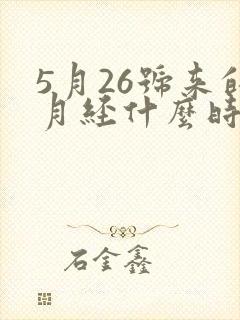 5月26號來的
月經什麼時
石金鑫